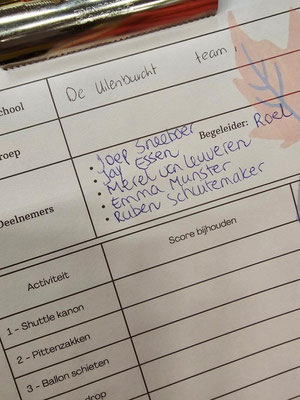 chool De Uilenburcht team 1
roep Begeleider: Roel
eelnemers
• Joep Sneeboer
• Jay Essen
• Merel van Leuweren
• Emma Munster
• Ruben Schuitemaker
Activiteit Score bijhouden
1 - Shuttle kanon
2 - Pittenzakken
3 - Ballon schieten
drop